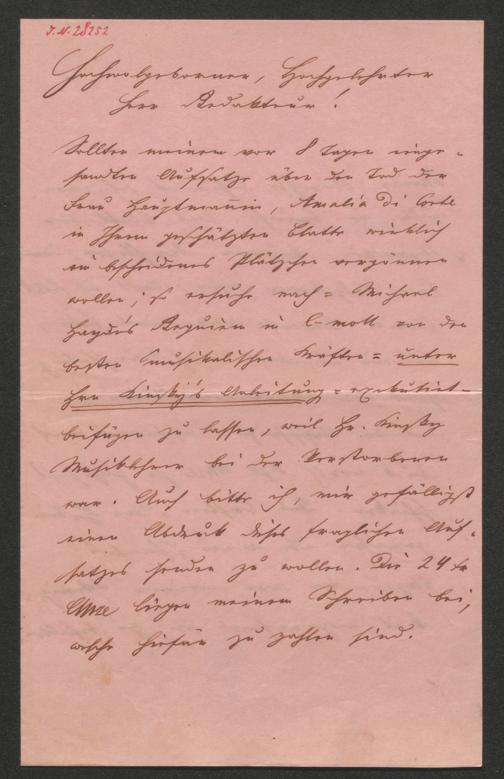 J.N. 28252
Hochwolgeborner, Hochgelehrter
Herr Redakteur!
Sollten meinem vor 8 Tagen einge-
sandten Aufsatze über den Tod der
Frau Hauptmannin, Amalia Di Corte
in Ihrem geschätzten Blatte wirklich
ein bescheidenes Plätzchen vergönnen
wollen; so ersuche nach = Michael
Haydn's Requiem in C-moll von den
besten musikalischen Kräften = unter
Hrn Kinsky's Anleitung = exekutirt -
beifügen zu lassen, weil Hr. Kinsky
Musiklehrer bei der Verstorbenen
war. Auch bitte ich, mir gefälligst
einen Abdruk dieses fraglichen Auf-
satzes senden zu wollen. Die 24 kr
liegen meinem Schreiben bei,
welche hiefür zu zahlen sind.